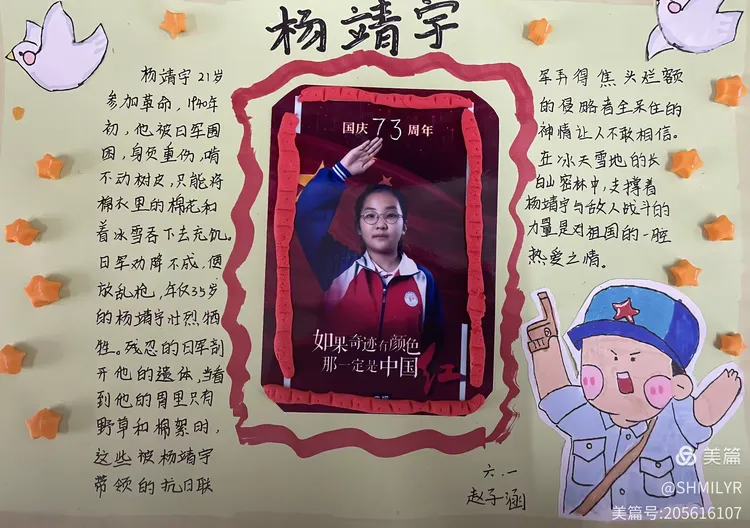 杨靖宇
杨靖宇21岁
参加革命，1940年
初，他被日军围
困，身负重伤，啃
不动树皮，只能将
棉衣里的棉花和
着冰雪吞下去充饥。
日军劝降不成，便
放乱枪，年仅35岁
的杨靖宇壮烈牺
牲。残忍的日军剖
开他的遗体，当看
到他的胃里只有
野草和棉絮时，
这些被杨靖宇
带领的抗日联
军弄得焦头烂额
的侵略者全呆住的
神情让人不敢相信。
在冰天雪地的长
白山密林中，支撑着
杨靖宇与敌人战斗的
力量是对祖国的一腔
热爱之情。
国庆73周年
如果奇迹有颜色
那一定是中国红
六.一
赵子涵
美篇
@SHMILYR
美篇号:205616107